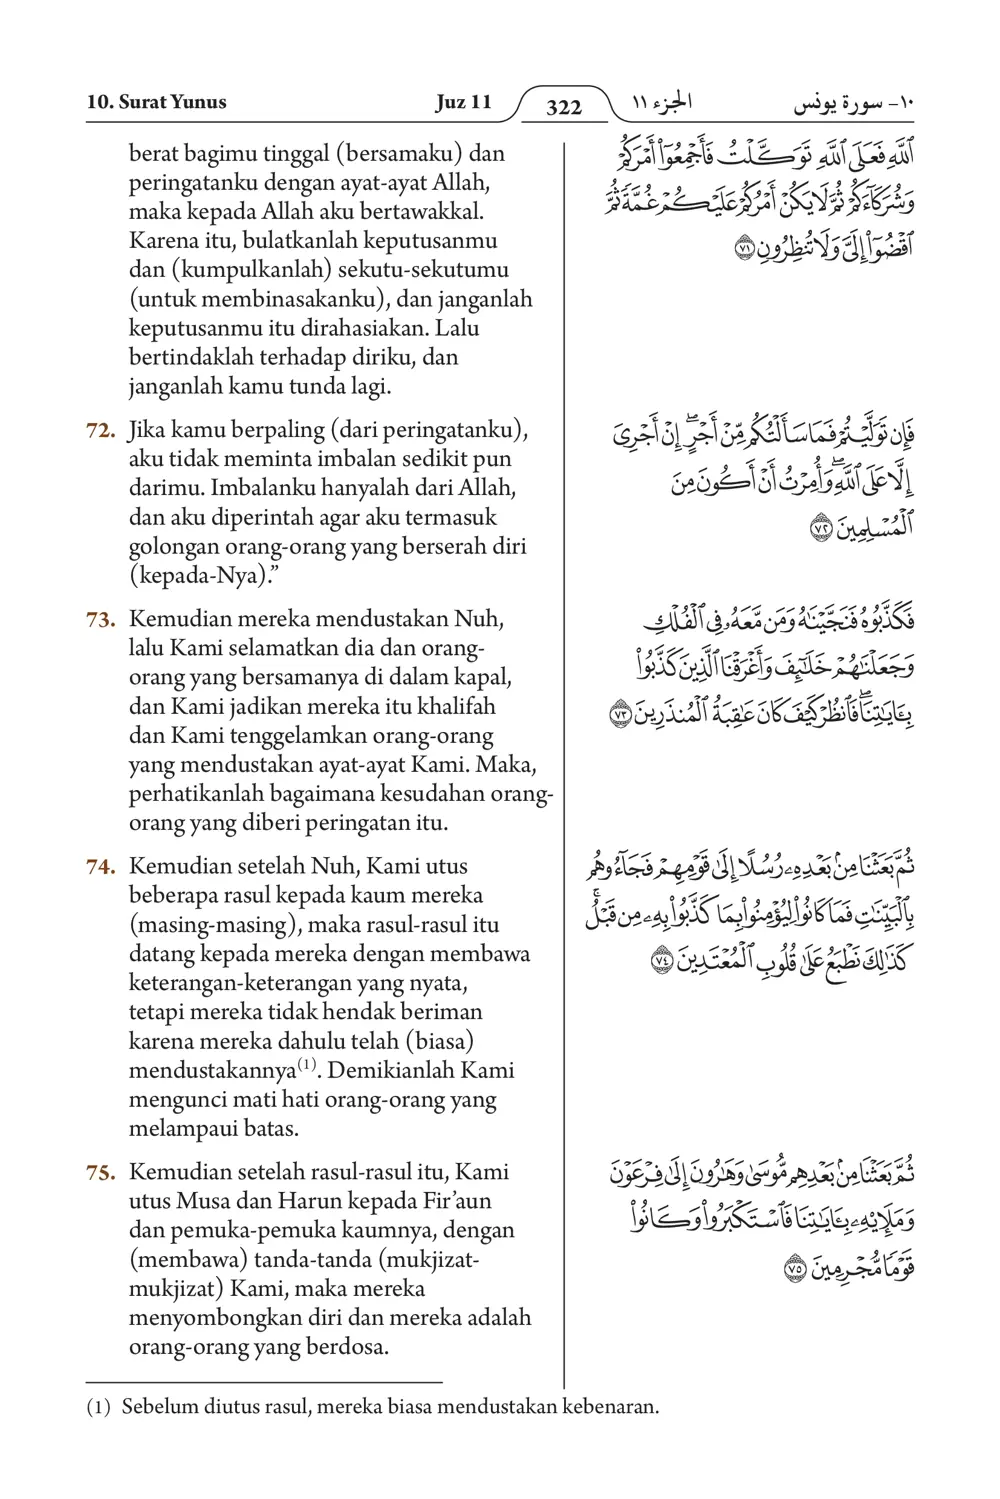 10. Surat Yunus Juz 11 322 الجزء ١١ ١٠- سورة يونس
berat bagimu tinggal (bersamaku) dan
peringatanku dengan ayat-ayat Allah,
maka kepada Allah aku bertawakkal.
Karena itu, bulatkanlah keputusanmu
dan (kumpulkanlah) sekutu-sekutumu
(untuk membinasakanku), dan janganlah
keputusanmu itu dirahasiakan. Lalu
bertindaklah terhadap diriku, dan
janganlah kamu tunda lagi.
72. Jika kamu berpaling (dari peringatanku),
aku tidak meminta imbalan sedikit pun
darimu. Imbalanku hanyalah dari Allah,
dan aku diperintah agar aku termasuk
golongan orang-orang yang berserah diri
(kepada-Nya).”
73. Kemudian mereka mendustakan Nuh,
lalu Kami selamatkan dia dan orang-
orang yang bersamanya di dalam kapal,
dan Kami jadikan mereka itu khalifah
dan Kami tenggelamkan orang-orang
yang mendustakan ayat-ayat Kami. Maka,
perhatikanlah bagaimana kesudahan orang-
orang yang diberi peringatan itu.
74. Kemudian setelah Nuh, Kami utus
beberapa rasul kepada kaum mereka
(masing-masing), maka rasul-rasul itu
datang kepada mereka dengan membawa
keterangan-keterangan yang nyata,
tetapi mereka tidak hendak beriman
karena mereka dahulu telah (biasa)
mendustakannya(1). Demikianlah Kami
mengunci mati hati orang-orang yang
melampaui batas.
75. Kemudian setelah rasul-rasul itu, Kami
utus Musa dan Harun kepada Fir’aun
dan pemuka-pemuka kaumnya, dengan
(membawa) tanda-tanda (mukjizat-
mukjizat) Kami, maka mereka
menyombongkan diri dan mereka adalah
orang-orang yang berdosa.
ٱللَّهِ فَعَلَى ٱللَّهِ تَوَكَّلْتُ فَأَجْمِعُوٓا۟ أَمْرَكُمْ
وَشُرَكَآءَكُمْ ثُمَّ لَا يَكُنْ أَمْرُكُمْ عَلَيْكُمْ غُمَّةً ثُمَّ
ٱقْضُوٓا۟ إِلَىَّ وَلَا تُنظِرُونِ ٧١
فَإِن تَوَلَّيْتُمْ فَمَا سَأَلْتُكُم مِّنْ أَجْرٍ ۖ إِنْ أَجْرِىَ
إِلَّا عَلَى ٱللَّهِ ۖ وَأُمِرْتُ أَنْ أَكُونَ مِنَ
ٱلْمُسْلِمِينَ ٧٢
فَكَذَّبُوهُ فَنَجَّيْنَٰهُ وَمَن مَّعَهُۥ فِى ٱلْفُلْكِ
وَجَعَلْنَٰهُمْ خَلَٰٓئِفَ وَأَغْرَقْنَا ٱلَّذِينَ كَذَّبُوا۟
بِـَٔايَٰتِنَا ۖ فَٱنظُرْ كَيْفَ كَانَ عَٰقِبَةُ ٱلْمُنذَرِينَ ٧٣
ثُمَّ بَعَثْنَا مِنۢ بَعْدِهِۦ رُسُلًا إِلَىٰ قَوْمِهِمْ فَجَآءُوهُم
بِٱلْبَيِّنَٰتِ فَمَا كَانُوا۟ لِيُؤْمِنُوا۟ بِمَا كَذَّبُوا۟ بِهِۦ مِن قَبْلُ ۚ
كَذَٰلِكَ نَطْبَعُ عَلَىٰ قُلُوبِ ٱلْمُعْتَدِينَ ٧٤
ثُمَّ بَعَثْنَا مِنۢ بَعْدِهِم مُّوسَىٰ وَهَٰرُونَ إِلَىٰ فِرْعَوْنَ
وَمَلَإِي۟هِۦ بِـَٔايَٰتِنَا فَٱسْتَكْبَرُوا۟ وَكَانُوا۟
قَوْمًا مُّجْرِمِينَ ٧٥
(1) Sebelum diutus rasul, mereka biasa mendustakan kebenaran.